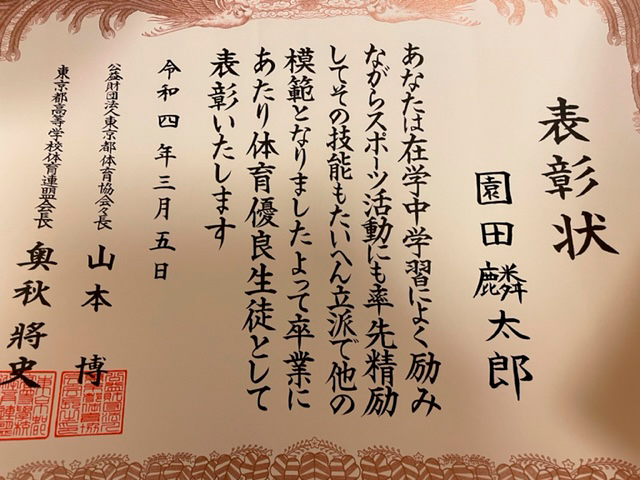 表彰状
園田麟太郎
あなたは在学中学習によく励み
ながらスポーツ活動にも率先精励
してその技能もたいへん立派で他の
模範となりましたよって卒業に
あたり体育優良生徒として
表彰いたします
令和四年三月五日
公益財団法人東京都体育協会々長 山本 博
東京都高等学校体育連盟会長 奥秋 將史